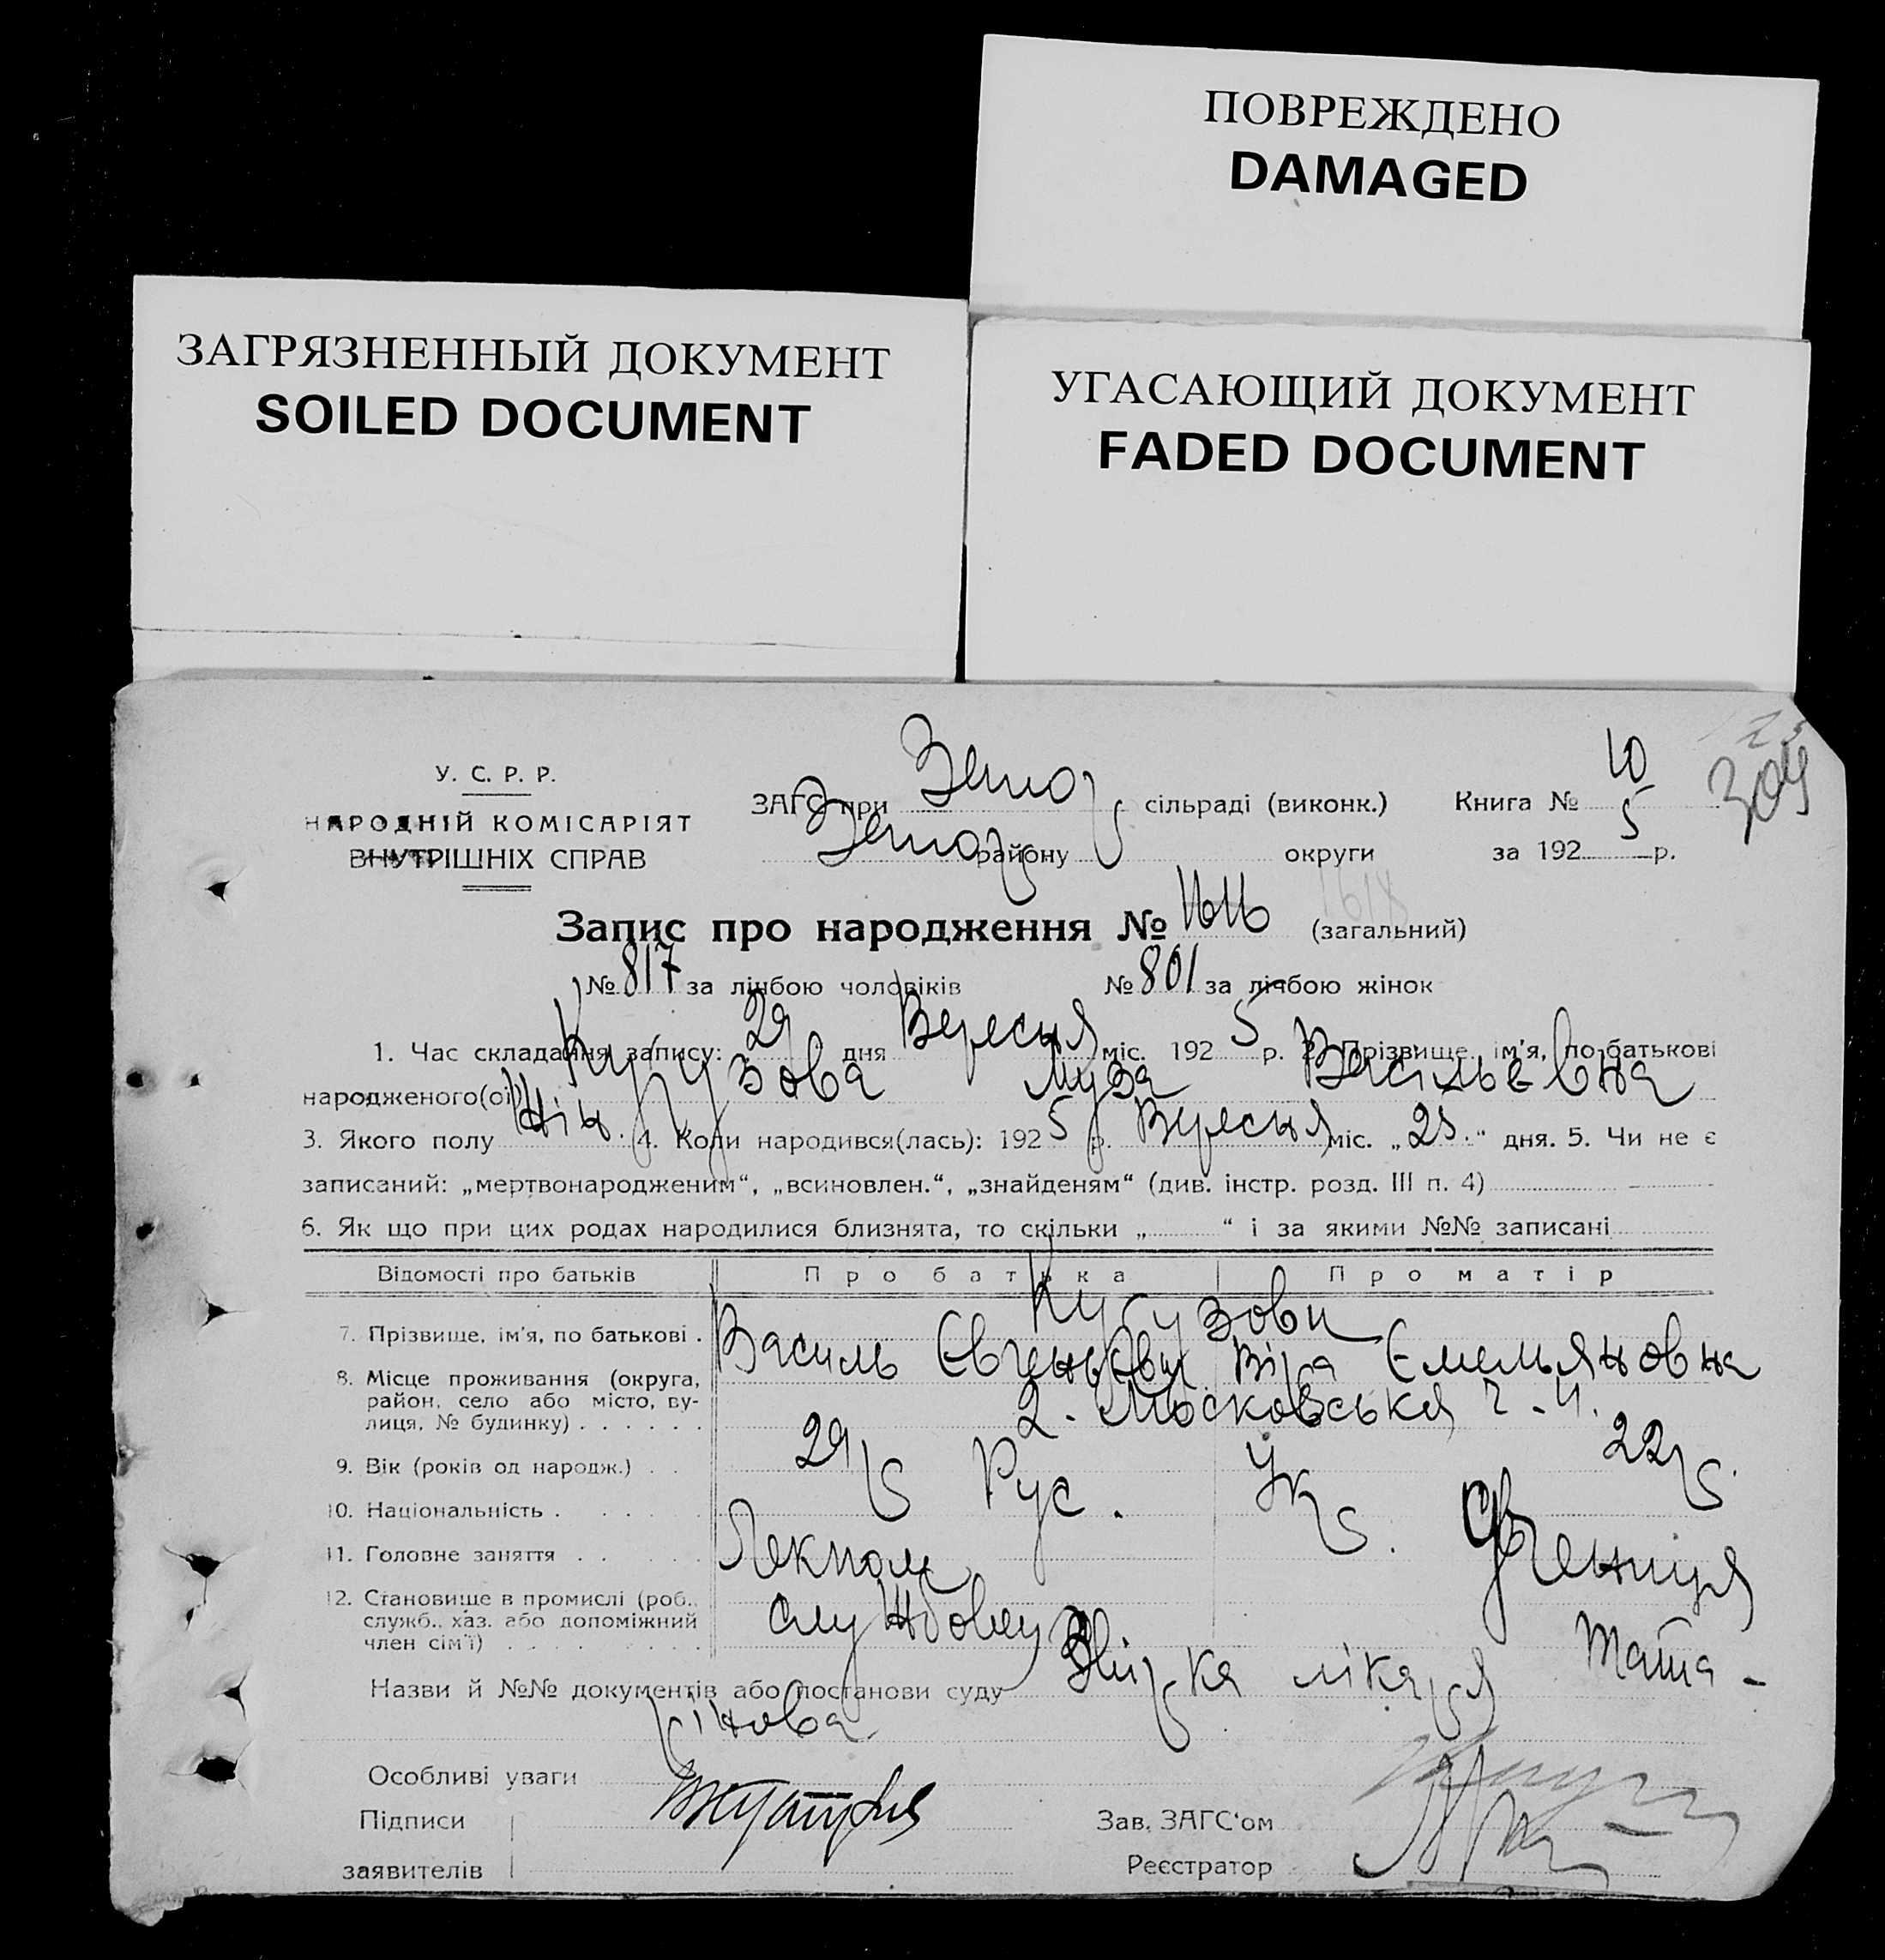 ПОВРЕЖДЕНО
DAMAGED
ЗАГРЯЗНЕННЫЙ ДОКУМЕНТ
SOILED DOCUMENT
УГАСАЮЩИЙ ДОКУМЕНТ
FADED DOCUMENT
У. С. Р. Р.
НАРОДНІЙ КОМІСАРІЯТ
ВНУТРІШНІХ СПРАВ
ЗАГС при сільраді (виконк.) Книга № 10
району округи за 1925 р.
Запис про народження № 1616 (загальний)
1618
№ 817 за лічбою чоловіків № 801 за лічбою жінок
1. Час складання запису: 29 дня Вересня міс. 1925 р. 2. Прізвище, ім'я, по батькові
народженого(ої) Муза Васильєвна
3. Якого полу Жін. 4. Коли народився(лась): 1925 р. Вересня міс. „25.“ дня. 5. Чи не є
записаний: „мертвонародженим“, „всиновлен.“, „знайденям“ (див. інстр. розд. III п. 4)
6. Як що при цих родах народилися близнята, то скільки „ “ і за якими №№ записані
Відомості про батьків Про батька Про матір
7. Прізвище, ім'я, по батькові . Василь Віра Ємельяновна
8. Місце проживання (округа, район, село або місто, вулиця, № будинку) . . . . . . 2. Московська
9. Вік (років од народж.) . . 29 р 22 р.
10. Національність . . . . . Рус. Укр.
11. Головне заняття . . . . . Лекпом Учениця
12. Становище в промислі (роб., служб., хаз. або допоміжний член сім'ї) . . . . . . . Службовец
Назви й №№ документів або постанови суду лікаря Тата-
рінова
Особливі уваги
Підписи Зав. ЗАГС'ом
заявителів Реєстратор